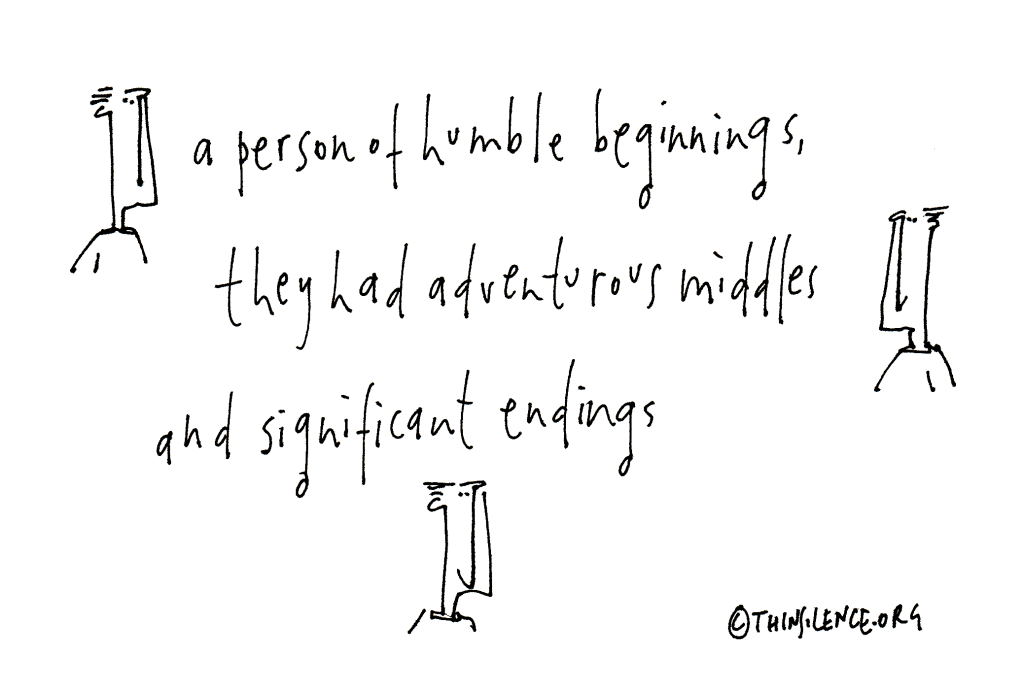 a person of humble beginnings,
they had adventurous middles
and significant endings
©THINSILENCE.ORG